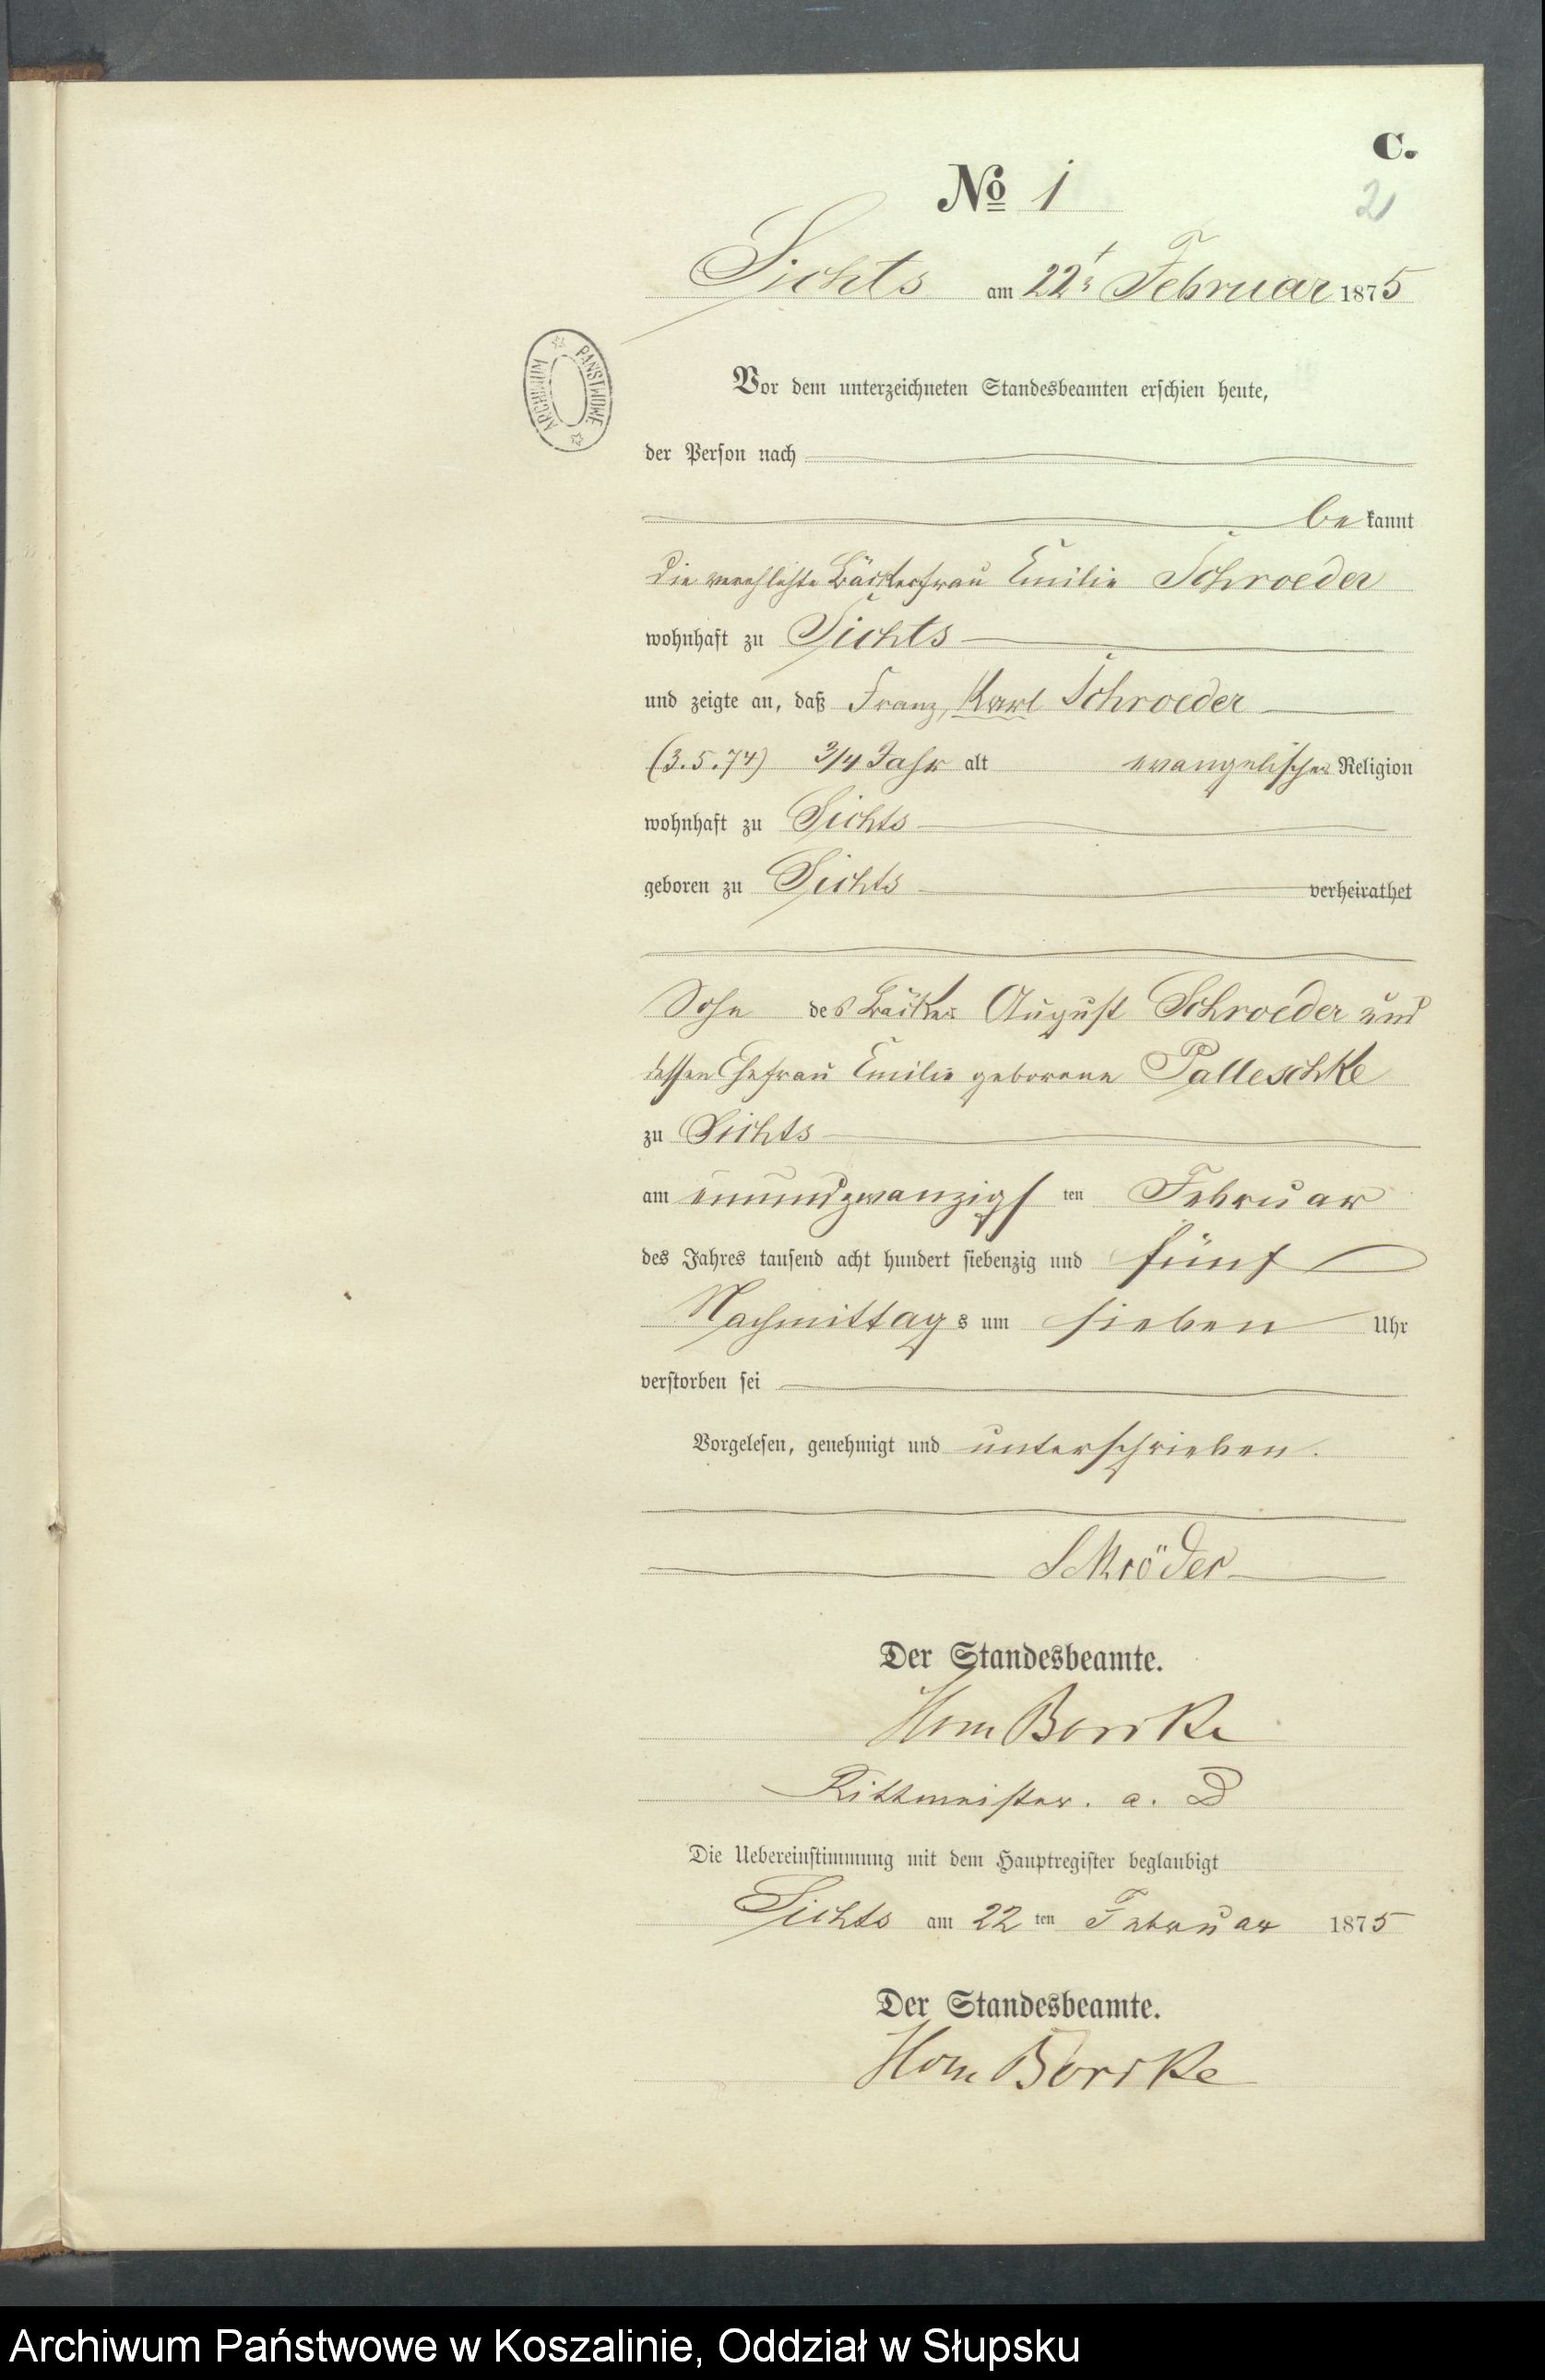 C.
No 1
2
Sichts am 22t Februar 1875
ARCHIWUM PAŃSTWOWE
Vor dem unterzeichneten Standesbeamten erschien heute,
der Person nach
be kannt
die verehlichte Bäckerfrau Emilie Schroeder
wohnhaft zu Sichts
und zeigte an, daß Franz, Karl Schroeder
(3.5.74) 3/4 Jahr alt evangelischer Religion
wohnhaft zu Sichts
geboren zu Sichts verheirathet
Sohn des Bäcker August Schroeder und
dessen Ehefrau Emilie geborene Palleschke
zu Sichts
am einundzwanzigsten Februar
des Jahres tausend acht hundert siebenzig und fünf
Nachmittags um sieben Uhr
verstorben sei
Vorgelesen, genehmigt und unterschrieben.
Schröder
Der Standesbeamte.
Rittmeister. a. D
Die Uebereinstimmung mit dem Hauptregister beglaubigt
Sichts am 22 ten Februar 1875
Der Standesbeamte.
Archiwum Państwowe w Koszalinie, Oddział w Słupsku